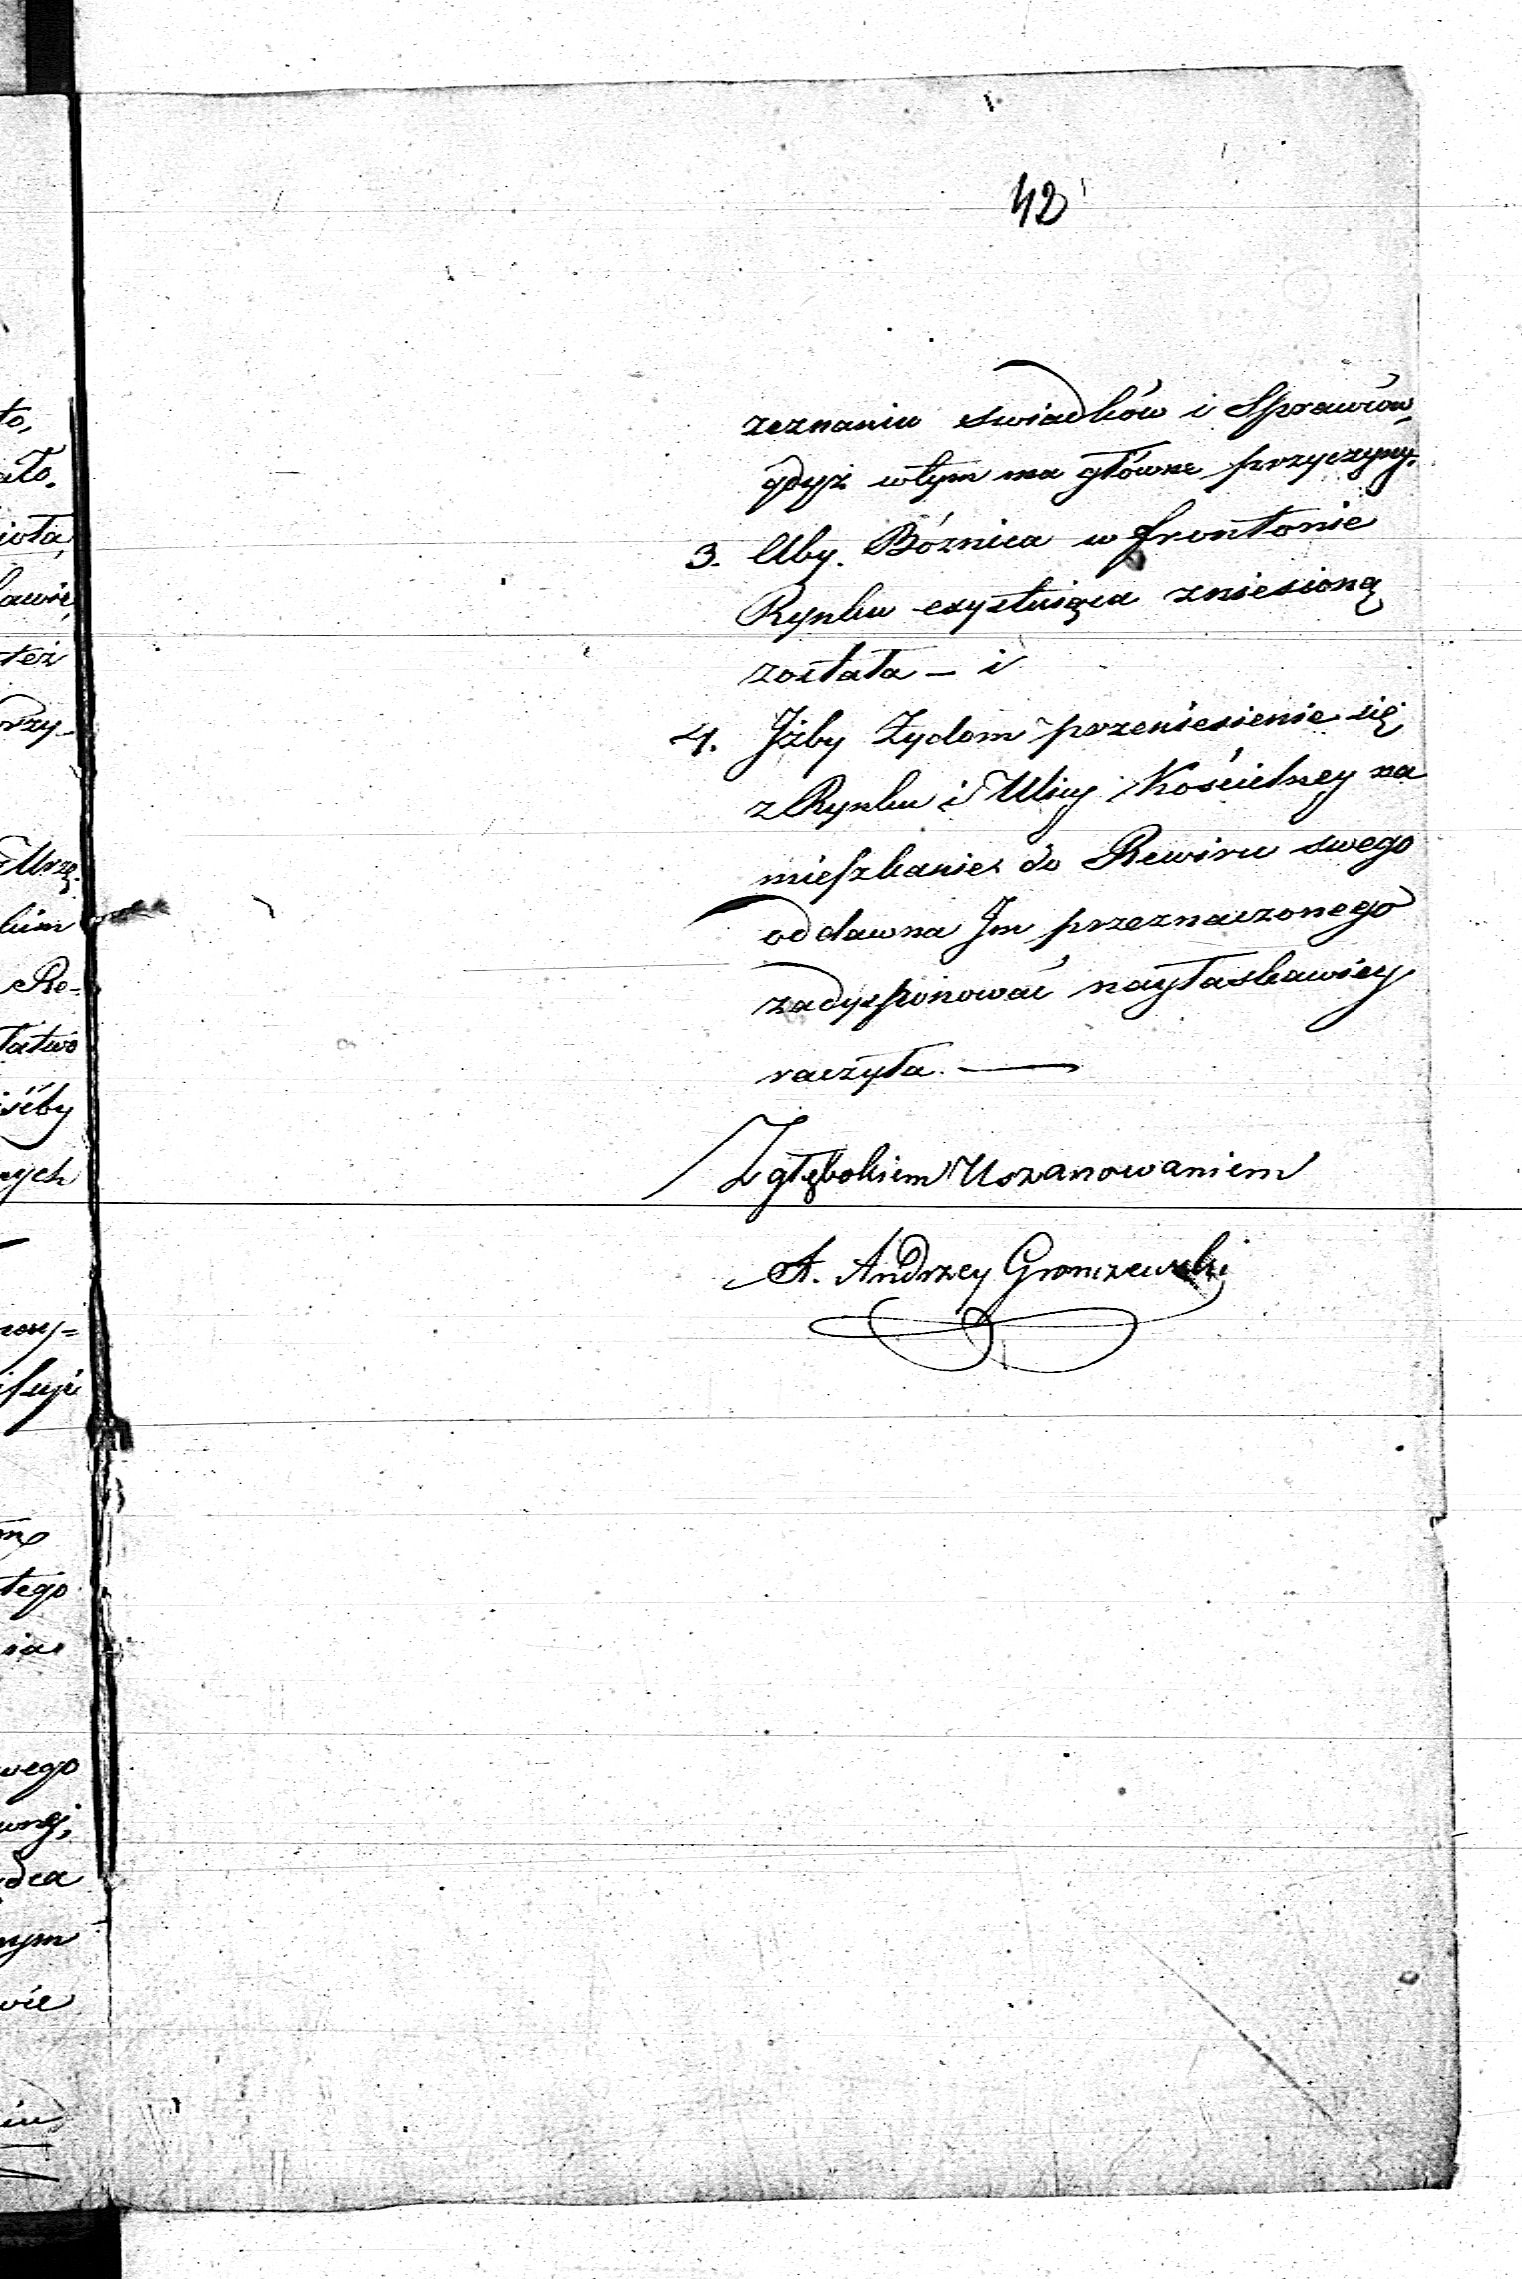 42
zeznaniu swiadków i Sprawców,
gdyż wtym ma główne przyczyny.
3. Aby. Bóźnica w frontonie
Rynku exystuiąca zniesioną
została — i
4. Jżby Żydom przeniesienie się
z Rynku i Ulicy Kościelney na
mieszkanie do Rewiru swego
oddawna Jm przeznaczonego
zadysponować nayłaskawiey
raczyła. —
Z głębokiem Uszanowaniem
A. Andrzey Gromzewski
to,
ato.
też
Urzę.
Re-
łatwo
nych
tego
wego
nym